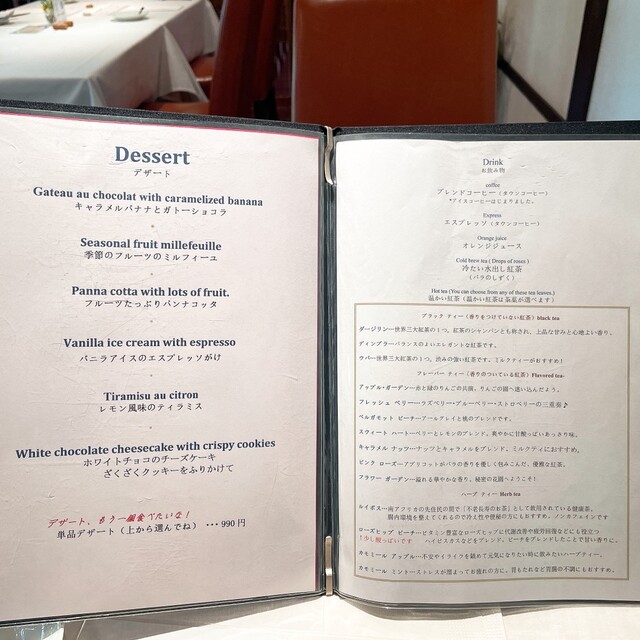 Dessert
デザート
Gateau au chocolat with caramelized banana
キャラメルバナナとガトーショコラ
Seasonal fruit millefeuille
季節のフルーツのミルフィーユ
Panna cotta with lots of fruit.
フルーツたっぷりパンナコッタ
Vanilla ice cream with espresso
バニラアイスのエスプレッソがけ
Tiramisu au citron
レモン風味のティラミス
White chocolate cheesecake with crispy cookies
ホワイトチョコのチーズケーキ
ざくざくクッキーをふりかけて
デザート、もう一個食べたいな!
単品デザート(上から選んでね) ・・・990円
Drink
お飲み物
coffee
ブレンドコーヒー(タウンコーヒー)
*アイスコーヒーはじまりました。
Express
エスプレッソ(タウンコーヒー)
Orange juice
オレンジジュース
Cold brew tea ( Drops of roses )
冷たい水出し紅茶
(バラのしずく)
Hot tea (You can choose from any of these tea leaves.)
温かい紅茶(温かい紅茶は茶葉が選べます)
ブラック ティー(香りをつけていない紅茶) black tea
ダージリン…世界三大紅茶の1つ。紅茶のシャンパンとも称され、上品な甘みと心地よい香り。
ディンブラ…バランスのよいエレガントな紅茶です。
ウバ…世界三大紅茶の1つ。渋みの強い紅茶です。ミルクティーがおすすめ!
フレーバー ティー(香りのついている紅茶) Flavored tea-
アップル・ガーデン…赤と緑のりんごの共演。りんごの園へ迷い込んだよう。
フレッシュ ベリー…ラズベリー・ブルーベリー・ストロベリーの三重奏♪
ベルガモット ピーチ…アールグレイと桃のブレンドです。
スウィート ハート…ベリーとレモンのブレンド。爽やかに甘酸っぱいあっさり味。
キャラメル ナッツ…ナッツとキャラメルをブレンド。ミルクティにおすすめ。
ピンク ローズ…アプリコットがバラの香りを優しく包みこんだ、優雅な紅茶。
フラワー ガーデン…溢れる華やかな香り。秘密の花園へようこそ!
ハーブ ティー Herb tea
ルイボス…南アフリカの先住民の間で「不老長寿のお茶」として飲用されている健康茶。
腸内環境を整えてくれるので冷え性や便秘の方にもおすすめ。ノンカフェインです
ローズヒップ ピーチ…ビタミン豊富なローズヒップに代謝改善や疲労回復などにも役立つ
!少し酸っぱいです ハイビスカスなどをブレンド。ピーチをブレンドしたことで甘い香りに。
カモミール アップル…不安やイライラを鎮めて元気になりたい時に飲みたいハーブティー。
カモミール ミント…ストレスが溜まってお疲れの方に。胃もたれなど胃腸の不調にもおすすめ。